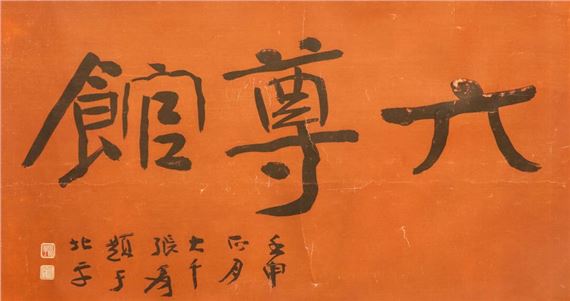 六尊館
壬申
正月
大千
張爰
題于
北平